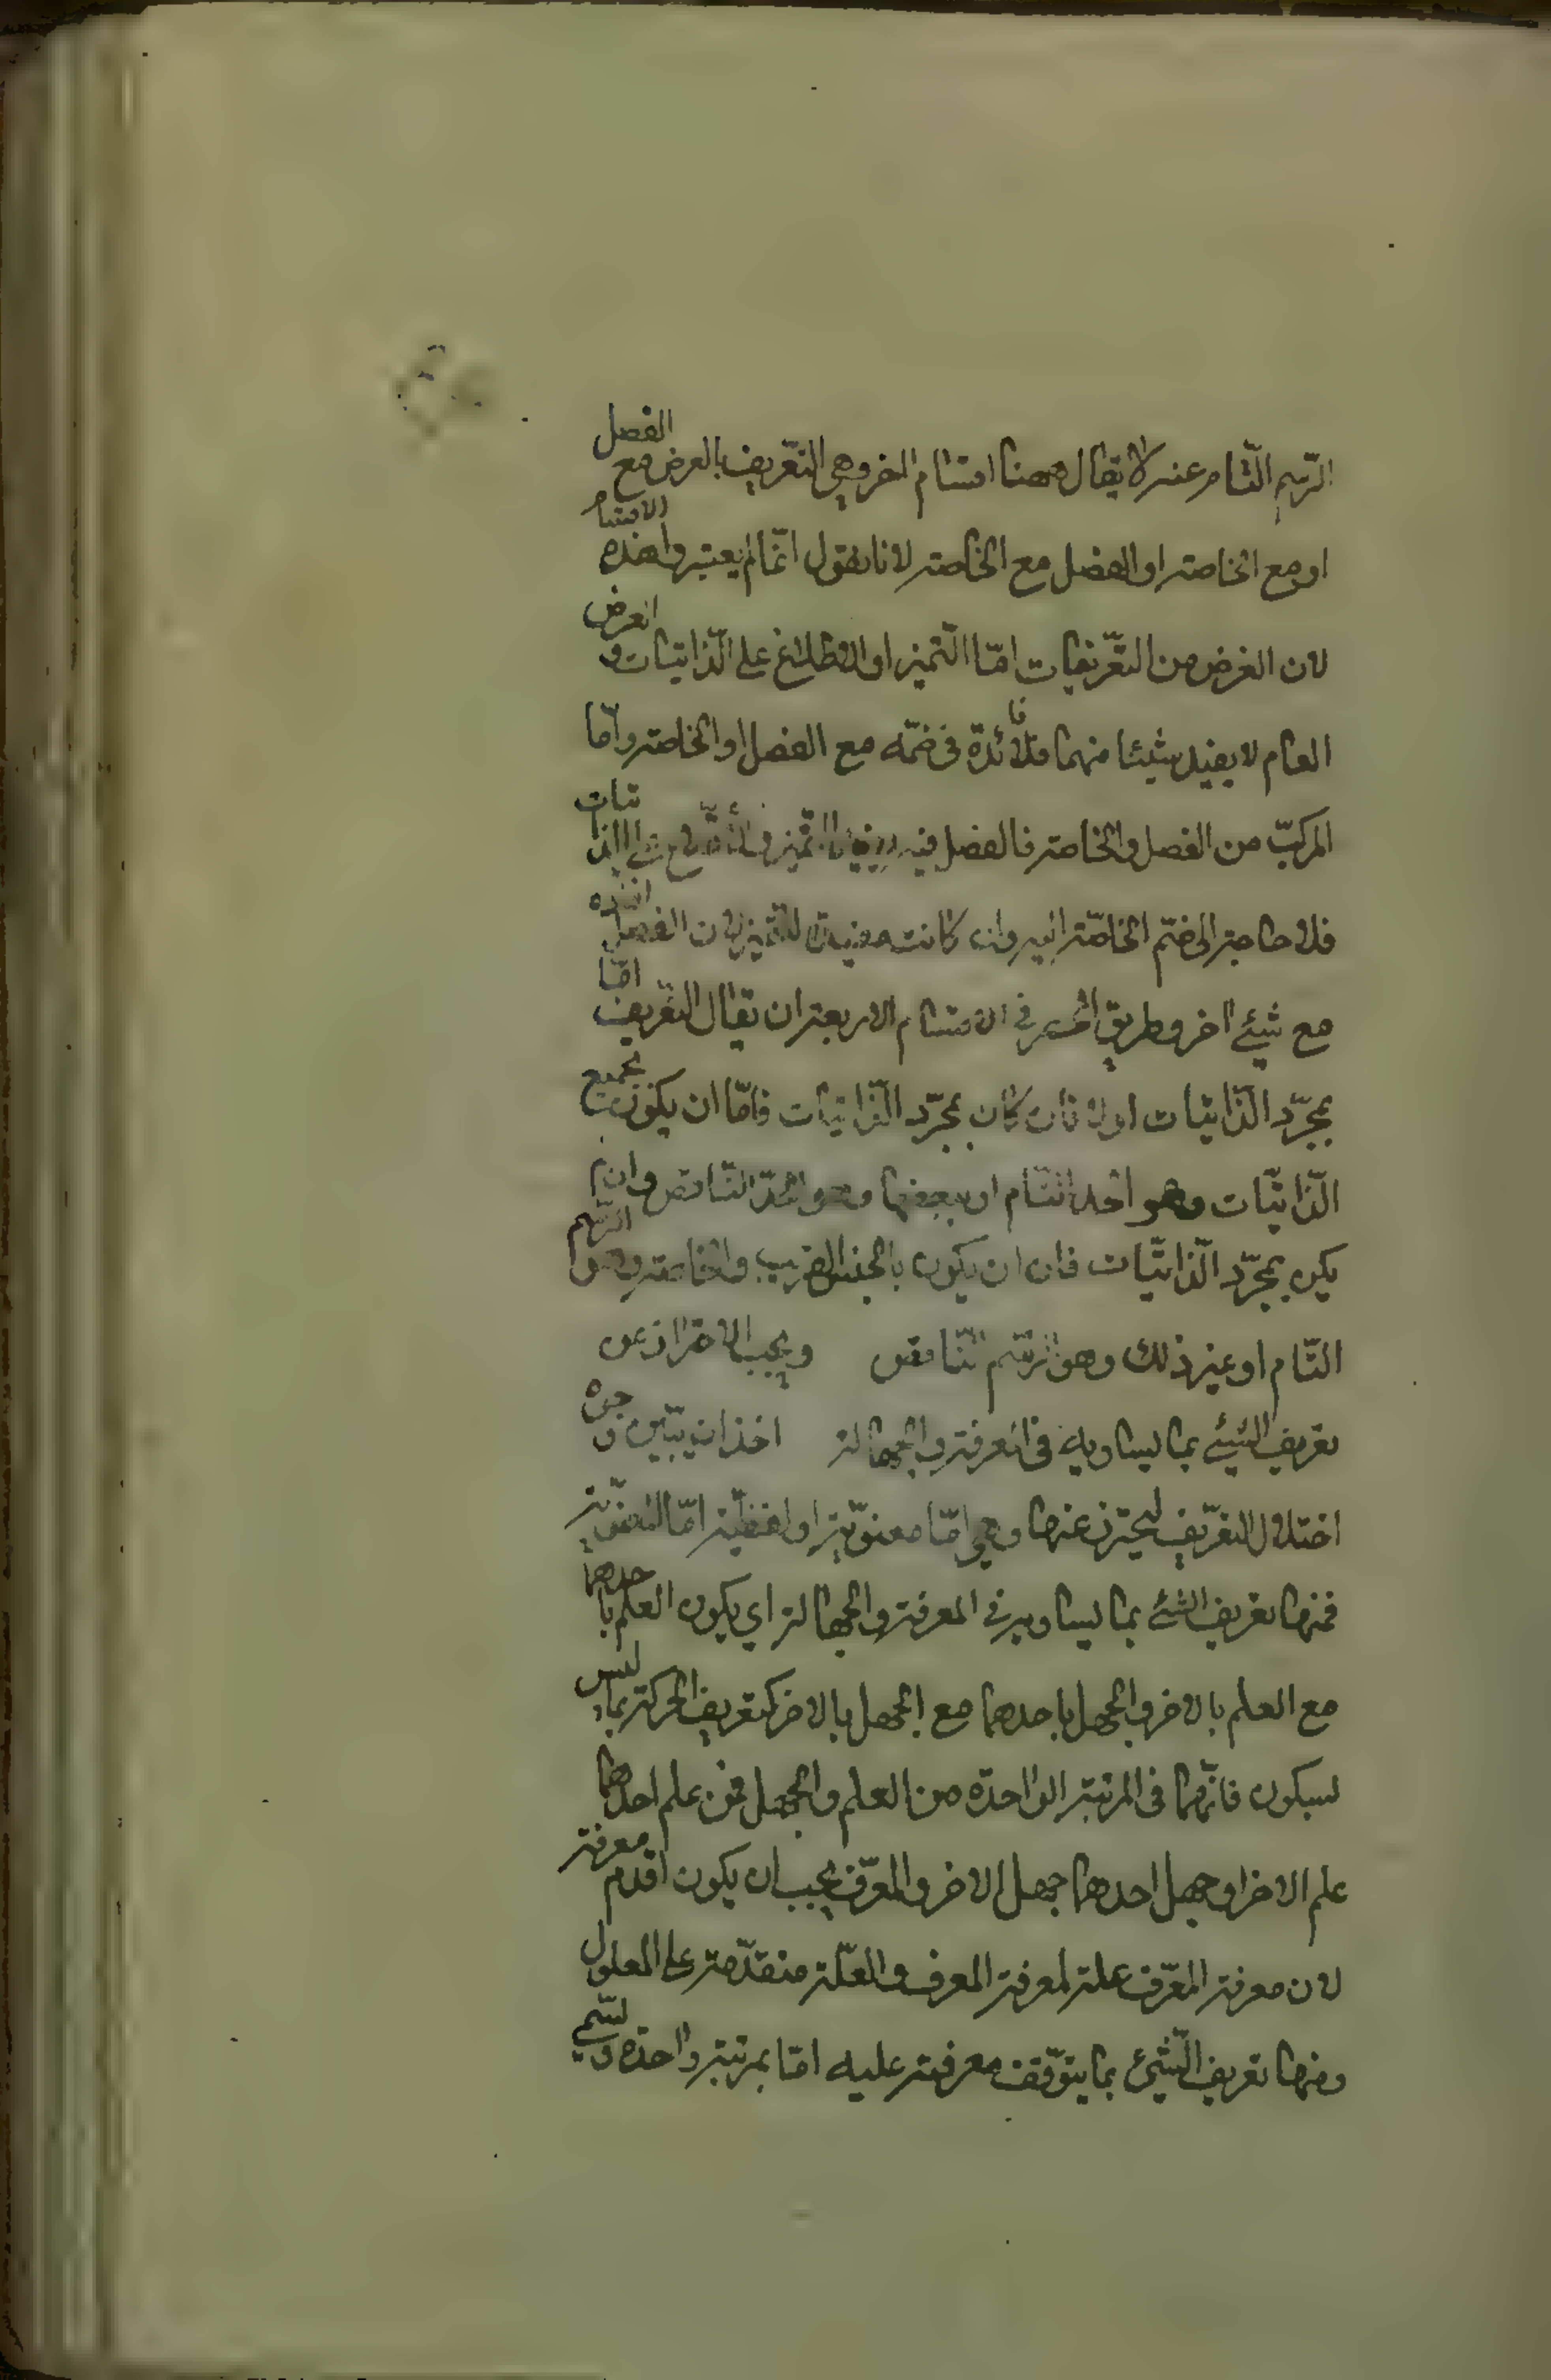 الرّسم التّام عنه لا يقال ههنا اقسام اخر وهي التّعريف بالعرض مع الفصل
او مع الخاصة او الفصل مع الخاصة لانا نقول انّما لم يعتبروا هذه الاقسام
لان الغرض من التّعريفات امّا التّميز او الاطلاع على الذّاتيات و العرض
العام لا يفيد شيئا منهما فلا فائدة في ضمّه مع الفصل او الخاصة وامّا
المركبّ من الفصل والخاصة فالفصل فيه يفيد التّميز والاطّلاع على الذاتيات
فلا حاجة الى ضمّ الخاصّة اليه وان كانت مفيدة للتّميز لان الفصل افاده
مع شيئ اخر وطريق الحصر في الاقسام الاربعة ان يقال التّعريف امّا
بمجرّد الذّاتيات او لا فان كان بمجرّد الذّاتيات فامّا ان يكون بجميع
الذّاتيّات وهو الحد التّام او ببعضها وهو الحدّ النّاقص وان لم
يكن بمجرّد الذّاتيّات فان ان يكون بالجنس القريب والخاصة وهو الرّسم
التّام او غير ذلك وهو الرّسم النّاقص ويجب الاحتراز عن
تعريف الشيئ بما يساويه في المعرفة والجهالة اخذ ان يبيّن وجوه
اختلال التعّريف ليحترز عنها وهي امّا معنويّة او لفظيّة امّا المعنويّة
فمنها تعريف الشئ بما يساويه في المعرفة والجهالة اي يكون العلم باحدهما
مع العلم بالاخر والجهل باحدهما مع الجهل بالاخر كتعريف الحركة بما ليس
بسكون فانّهما في المرتبة الواحدة من العلم والجهل فمن علم احدهما
علم الاخر او جهل احدهما جهل الاخر والمعرّف يجب ان يكون اقدم معرفة
لان معرفة المعّرف علة لمعرفة المعرف والعّلة متقدّمة على المعلول
ومنها تعريف الّشيئ بما يتوّقف معرفته عليه امّا بمرتبة واحدة و يسّمى